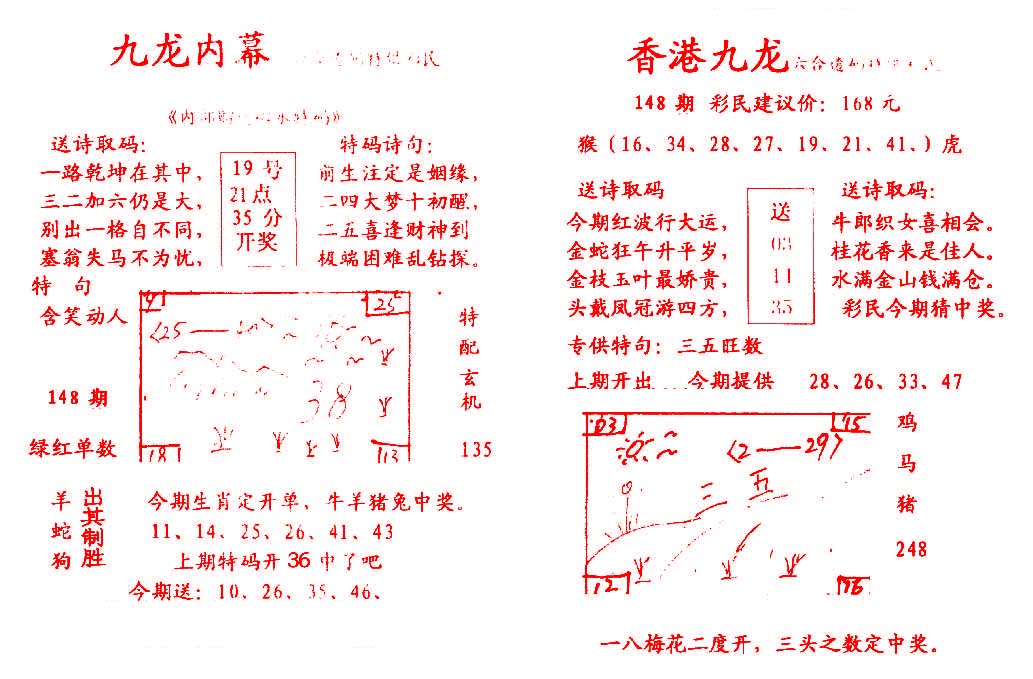 九龙内幕
送诗取码：
一路乾坤在其中，
三二加六仍是大，
别出一格自不同，
塞翁失马不为忧，
19 号
21 点
35 分
开奖
特码诗句：
前生注定是姻缘，
二四大梦十初醒，
二五喜逢财神到
极端困难乱钻探。
特 句
含笑动人
148 期
绿红单数
25
25
38
18
13
特配玄机
135
羊蛇狗
出其制胜
今期生肖定开单，牛羊猪兔中奖。
11、14、25、26、41、43
上期特码开36 中了吧
今期送：10、26、35、46、
香港九龙
148 期 彩民建议价：168 元
猴（16、34、28、27、19、21、41、）虎
送诗取码
今期红波行大运，
金蛇狂午升平岁，
金枝玉叶最娇贵，
头戴凤冠游四方，
送
03
11
35
送诗取码：
牛郎织女喜相会。
桂花香来是佳人。
水满金山钱满仓。
彩民今期猜中奖。
专供特句：三五旺数
上期开出 今期提供 28、26、33、47
03
15
2——29
三 五
12
16
鸡
马
猪
248
一八梅花二度开，三头之数定中奖。